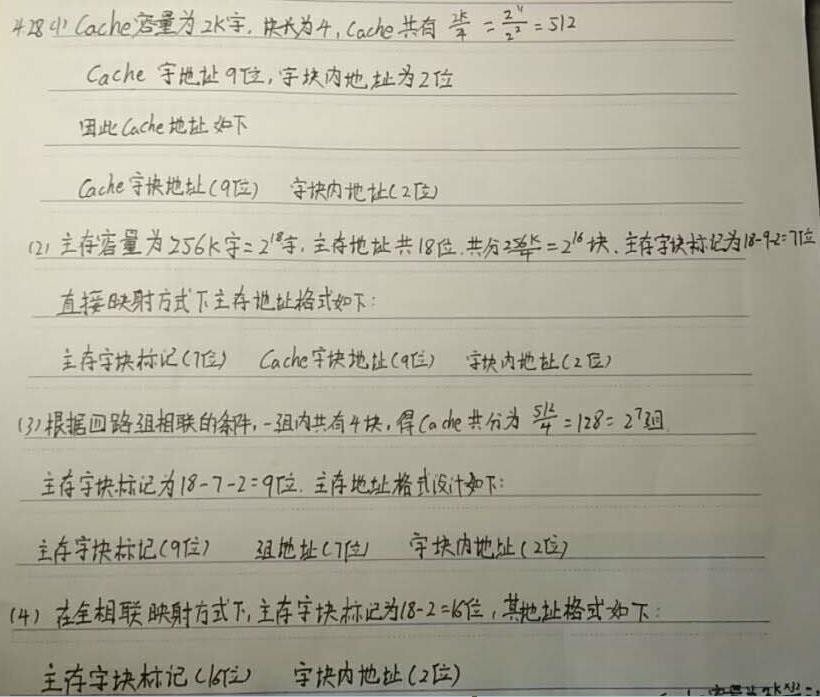 4.28 (1) Cache容量为2K字,块长为4,Cache共有 2K/4 = 2^11/2^2 = 512
Cache 字地址9位,字块内地址为2位
因此Cache地址如下
Cache字块地址(9位) 字块内地址(2位)
(2) 主存容量为256K字=2^18字,主存地址共18位.共分256K/4=2^16块,主存字块标记为18-9-2=7位
直接映射方式下主存地址格式如下:
主存字块标记(7位) Cache字块地址(9位) 字块内地址(2位)
(3)根据四路组相联的条件,一组内共有4块,得Cache共分为 512/4 = 128 = 2^7组
主存字块标记为18-7-2=9位.主存地址格式设计如下:
主存字块标记(9位) 组地址(7位) 字块内地址(2位)
(4) 在全相联映射方式下,主存字块标记为18-2=16位,其地址格式如下:
主存字块标记(16位) 字块内地址(2位)